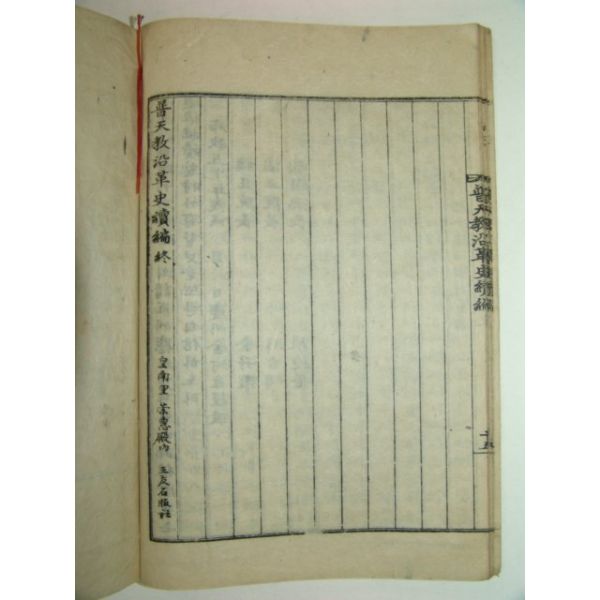 普天教沿革史續編
十五
普天教沿革史續編 終
皇南里 崇惠殿內 三友石版社